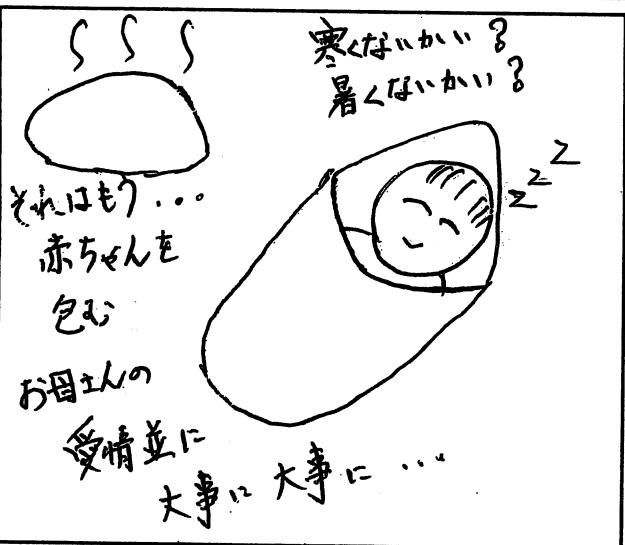 寒くないかい?
暑くないかい?
zzz
それはもう...
赤ちゃんを
包む
お母さんの
愛情並に
大事に大事に...